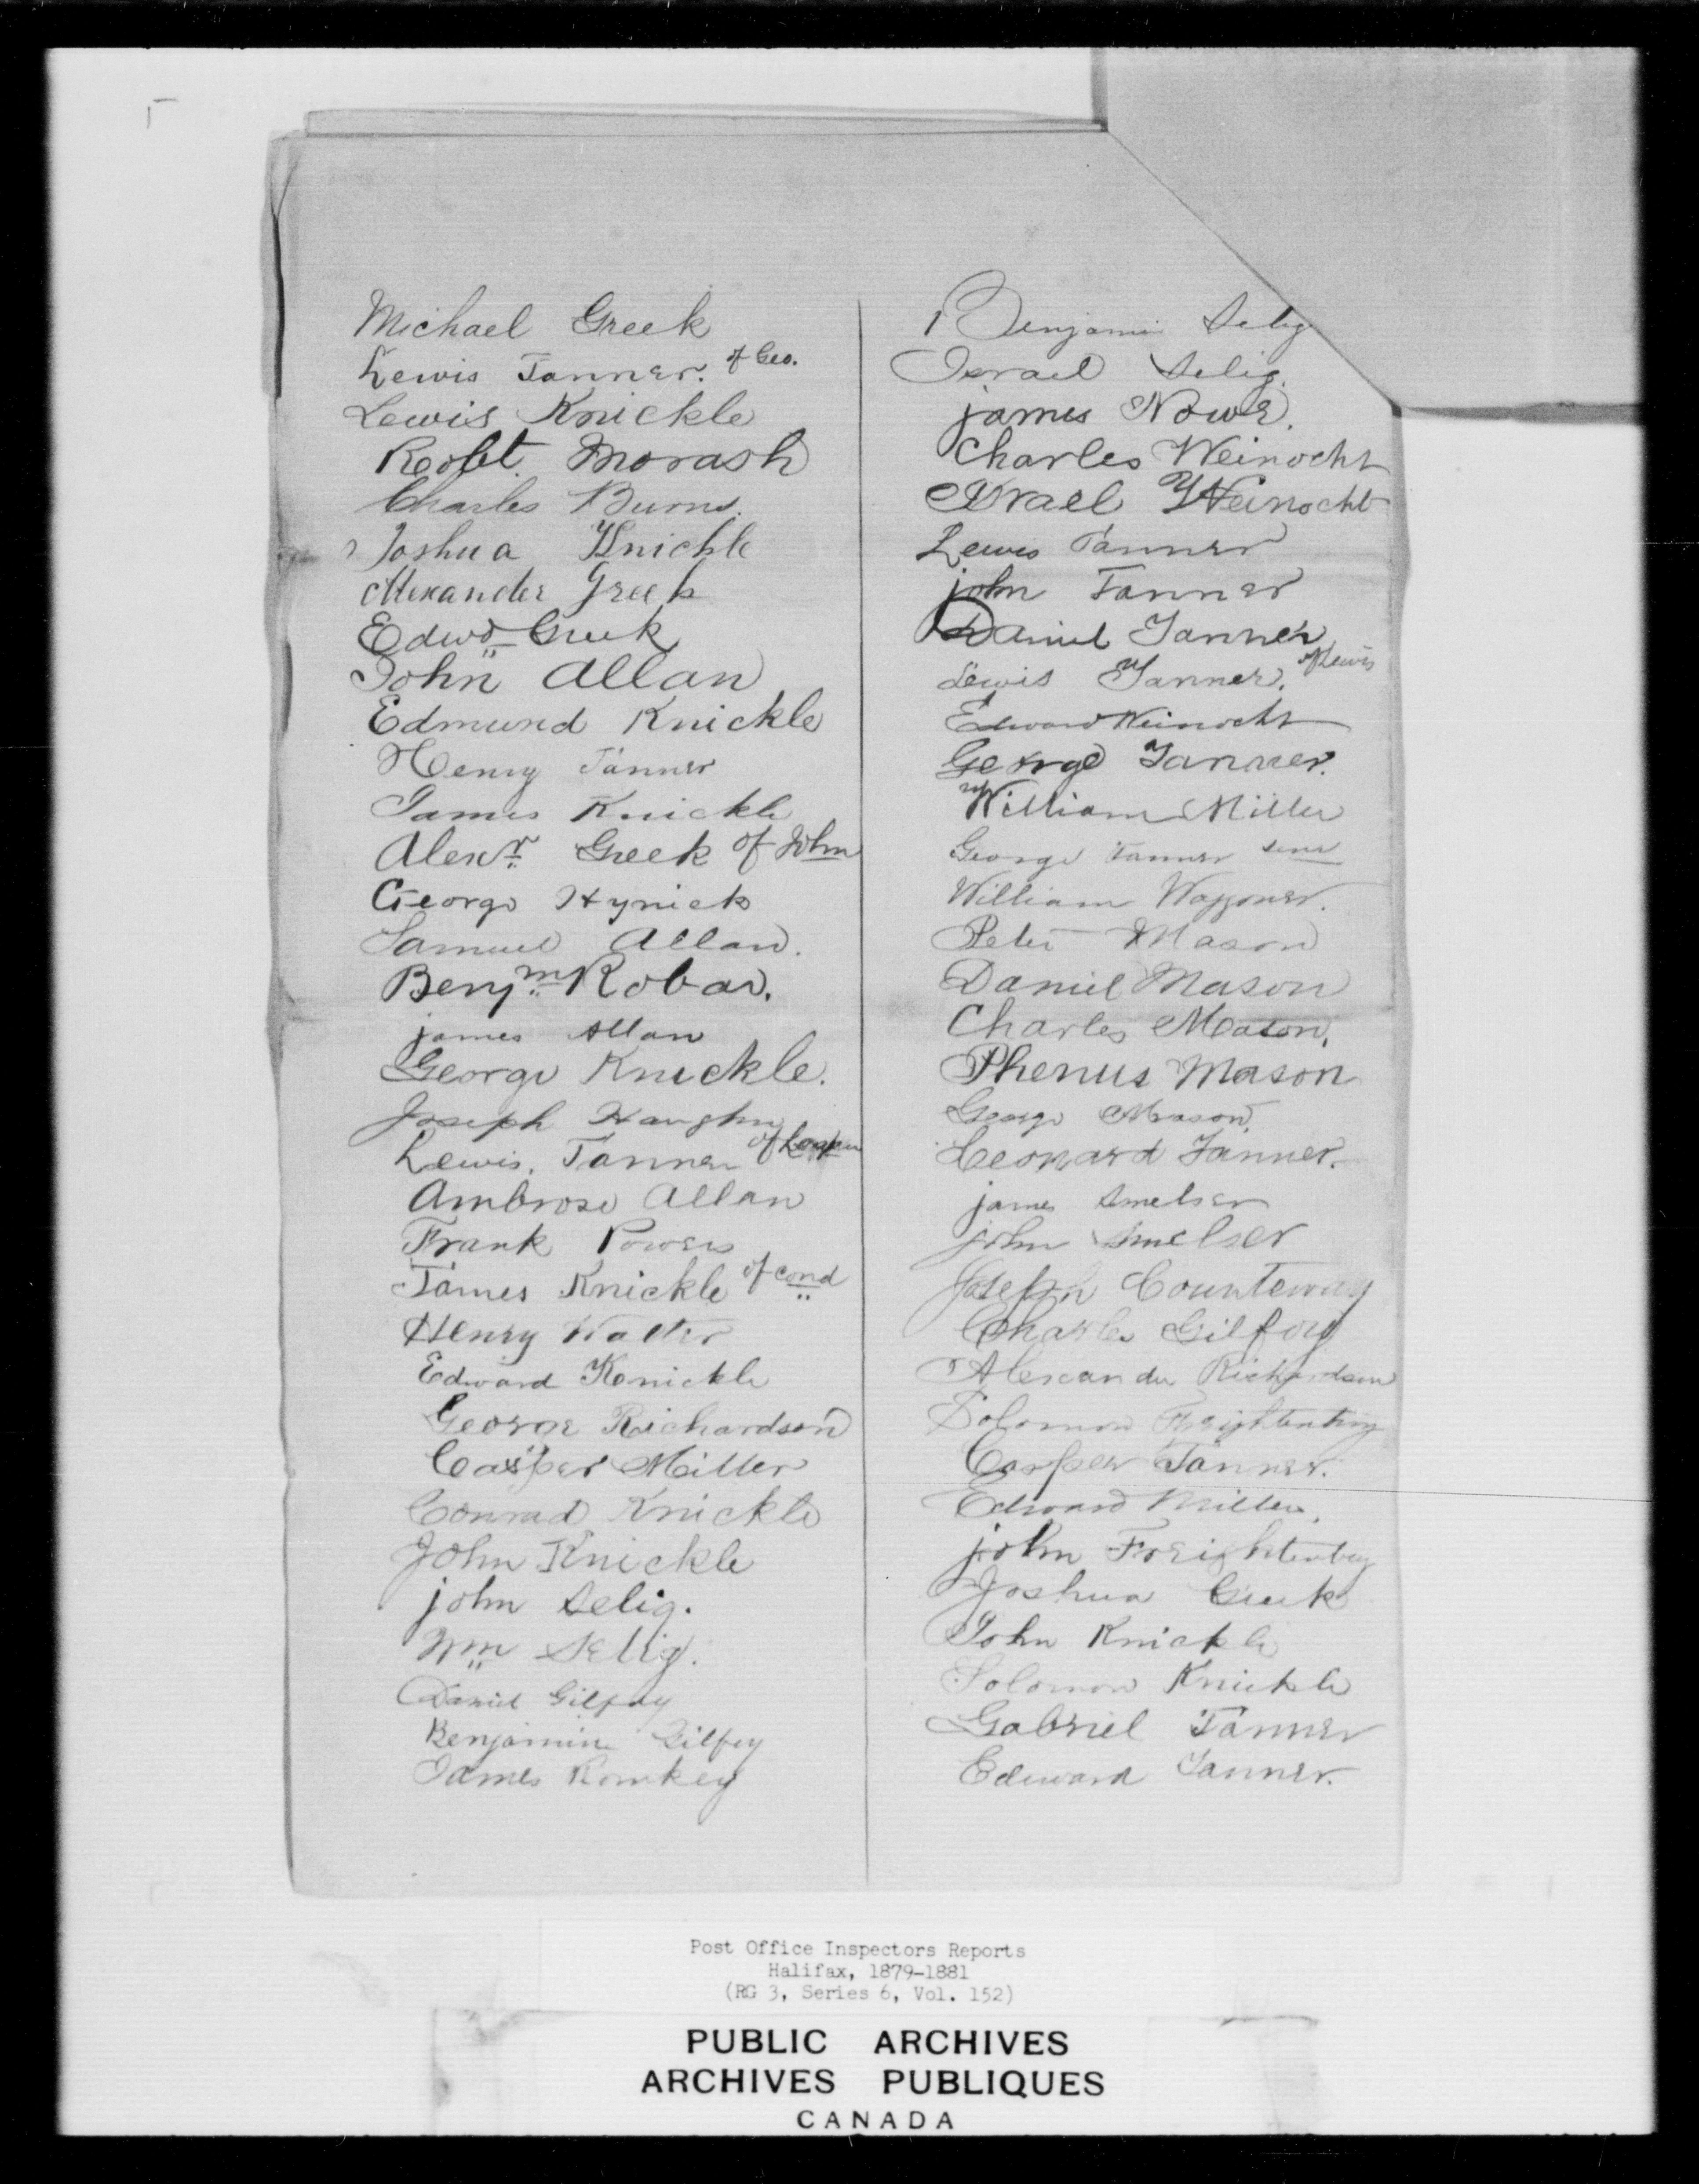 Michael Greek
Lewis Tanner. of Geo.
Lewis Knickle
Robt. Morash
Charles Burns.
Joshua Knickle
Alexander Greek
Edwd Greek
John Allan
Edmund Knickle
Henry Tanner
James Knickle
Alexr. Greek of John
George Hynick
Samuel Allan.
Benjm. Robar.
james Allan
George Knickle.
Joseph
Lewis. Tanner of
Ambrose Allan
Frank Powers
James Knickle of Cond
Henry Walter
Edward Knickle
George Richardson
Casper Miller
Conrad Knickle
John Knickle
john Selig.
Wm Selig.
Daniel Gilfoy
Benjamin Gilfoy
James Romkey
Benjamin Selig
Israel Selig.
james Nowe.
Charles Weinocht
Israel Weinocht
Lewis Tanner
john Tanner
Daniel Tanner
Lewis Tanner. of Lewis
Edward Weinocht
George Tanner.
William Miller
George Tanner senr
William Waggoner.
Peter Mason
Daniel Mason
Charles Mason.
Phenus Mason
George Mason.
Leonard Tanner.
james Smelser
john Smelser
Joseph Counteway
Charles Gilfoy
Alexander Richardson
Solomon
Casper Tanner.
Edward Miller.
john Freightenburg
Joshua Greek
John Knickle
Solomon Knickle
Gabriel Tanner
Edward Tanner.
Post Office Inspectors Reports
Halifax, 1879-1881
(RG 3, Series 6, Vol. 152)
PUBLIC ARCHIVES
ARCHIVES PUBLIQUES
CANADA